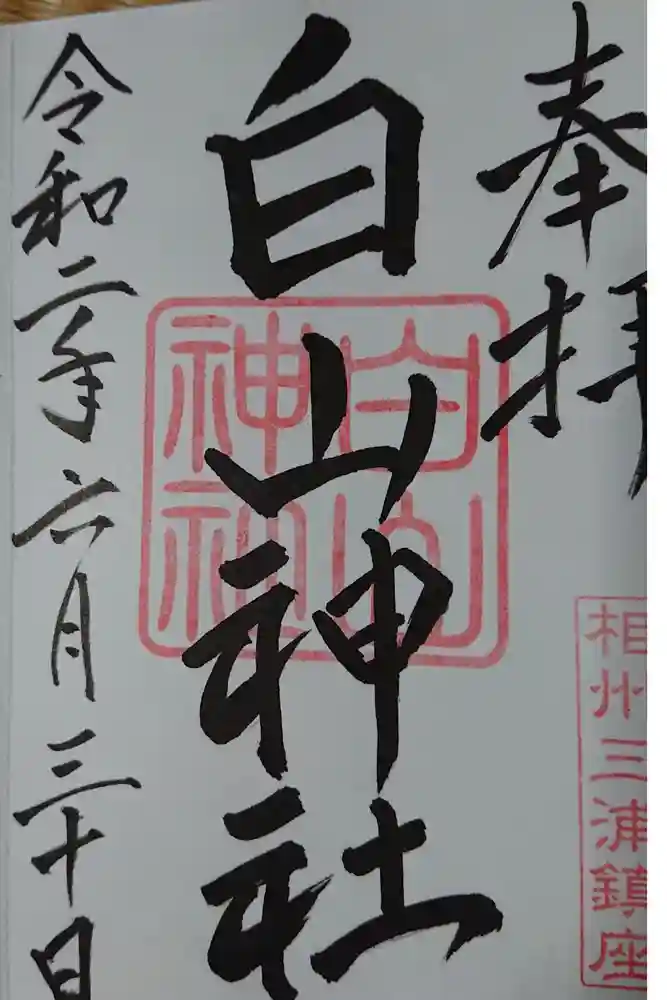 奉拝
白山神社
令和二年六月三十日
相州三浦鎮座
白山
神社